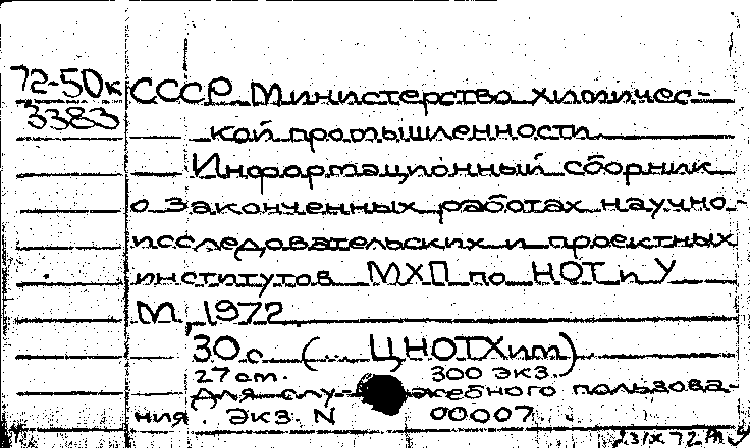 72-50к СССР. Министерство химичес-
3383 кой промышленности.
Информационный сборник
о законченных работах научно-
исследовательских и проектных
институтов МХП по НОТ и У
М., 1972.
30с. (... ЦНОТХим)
27 см. 300 экз.
Для служебного пользова-
ния. Экз. N 00007.
23/X 72